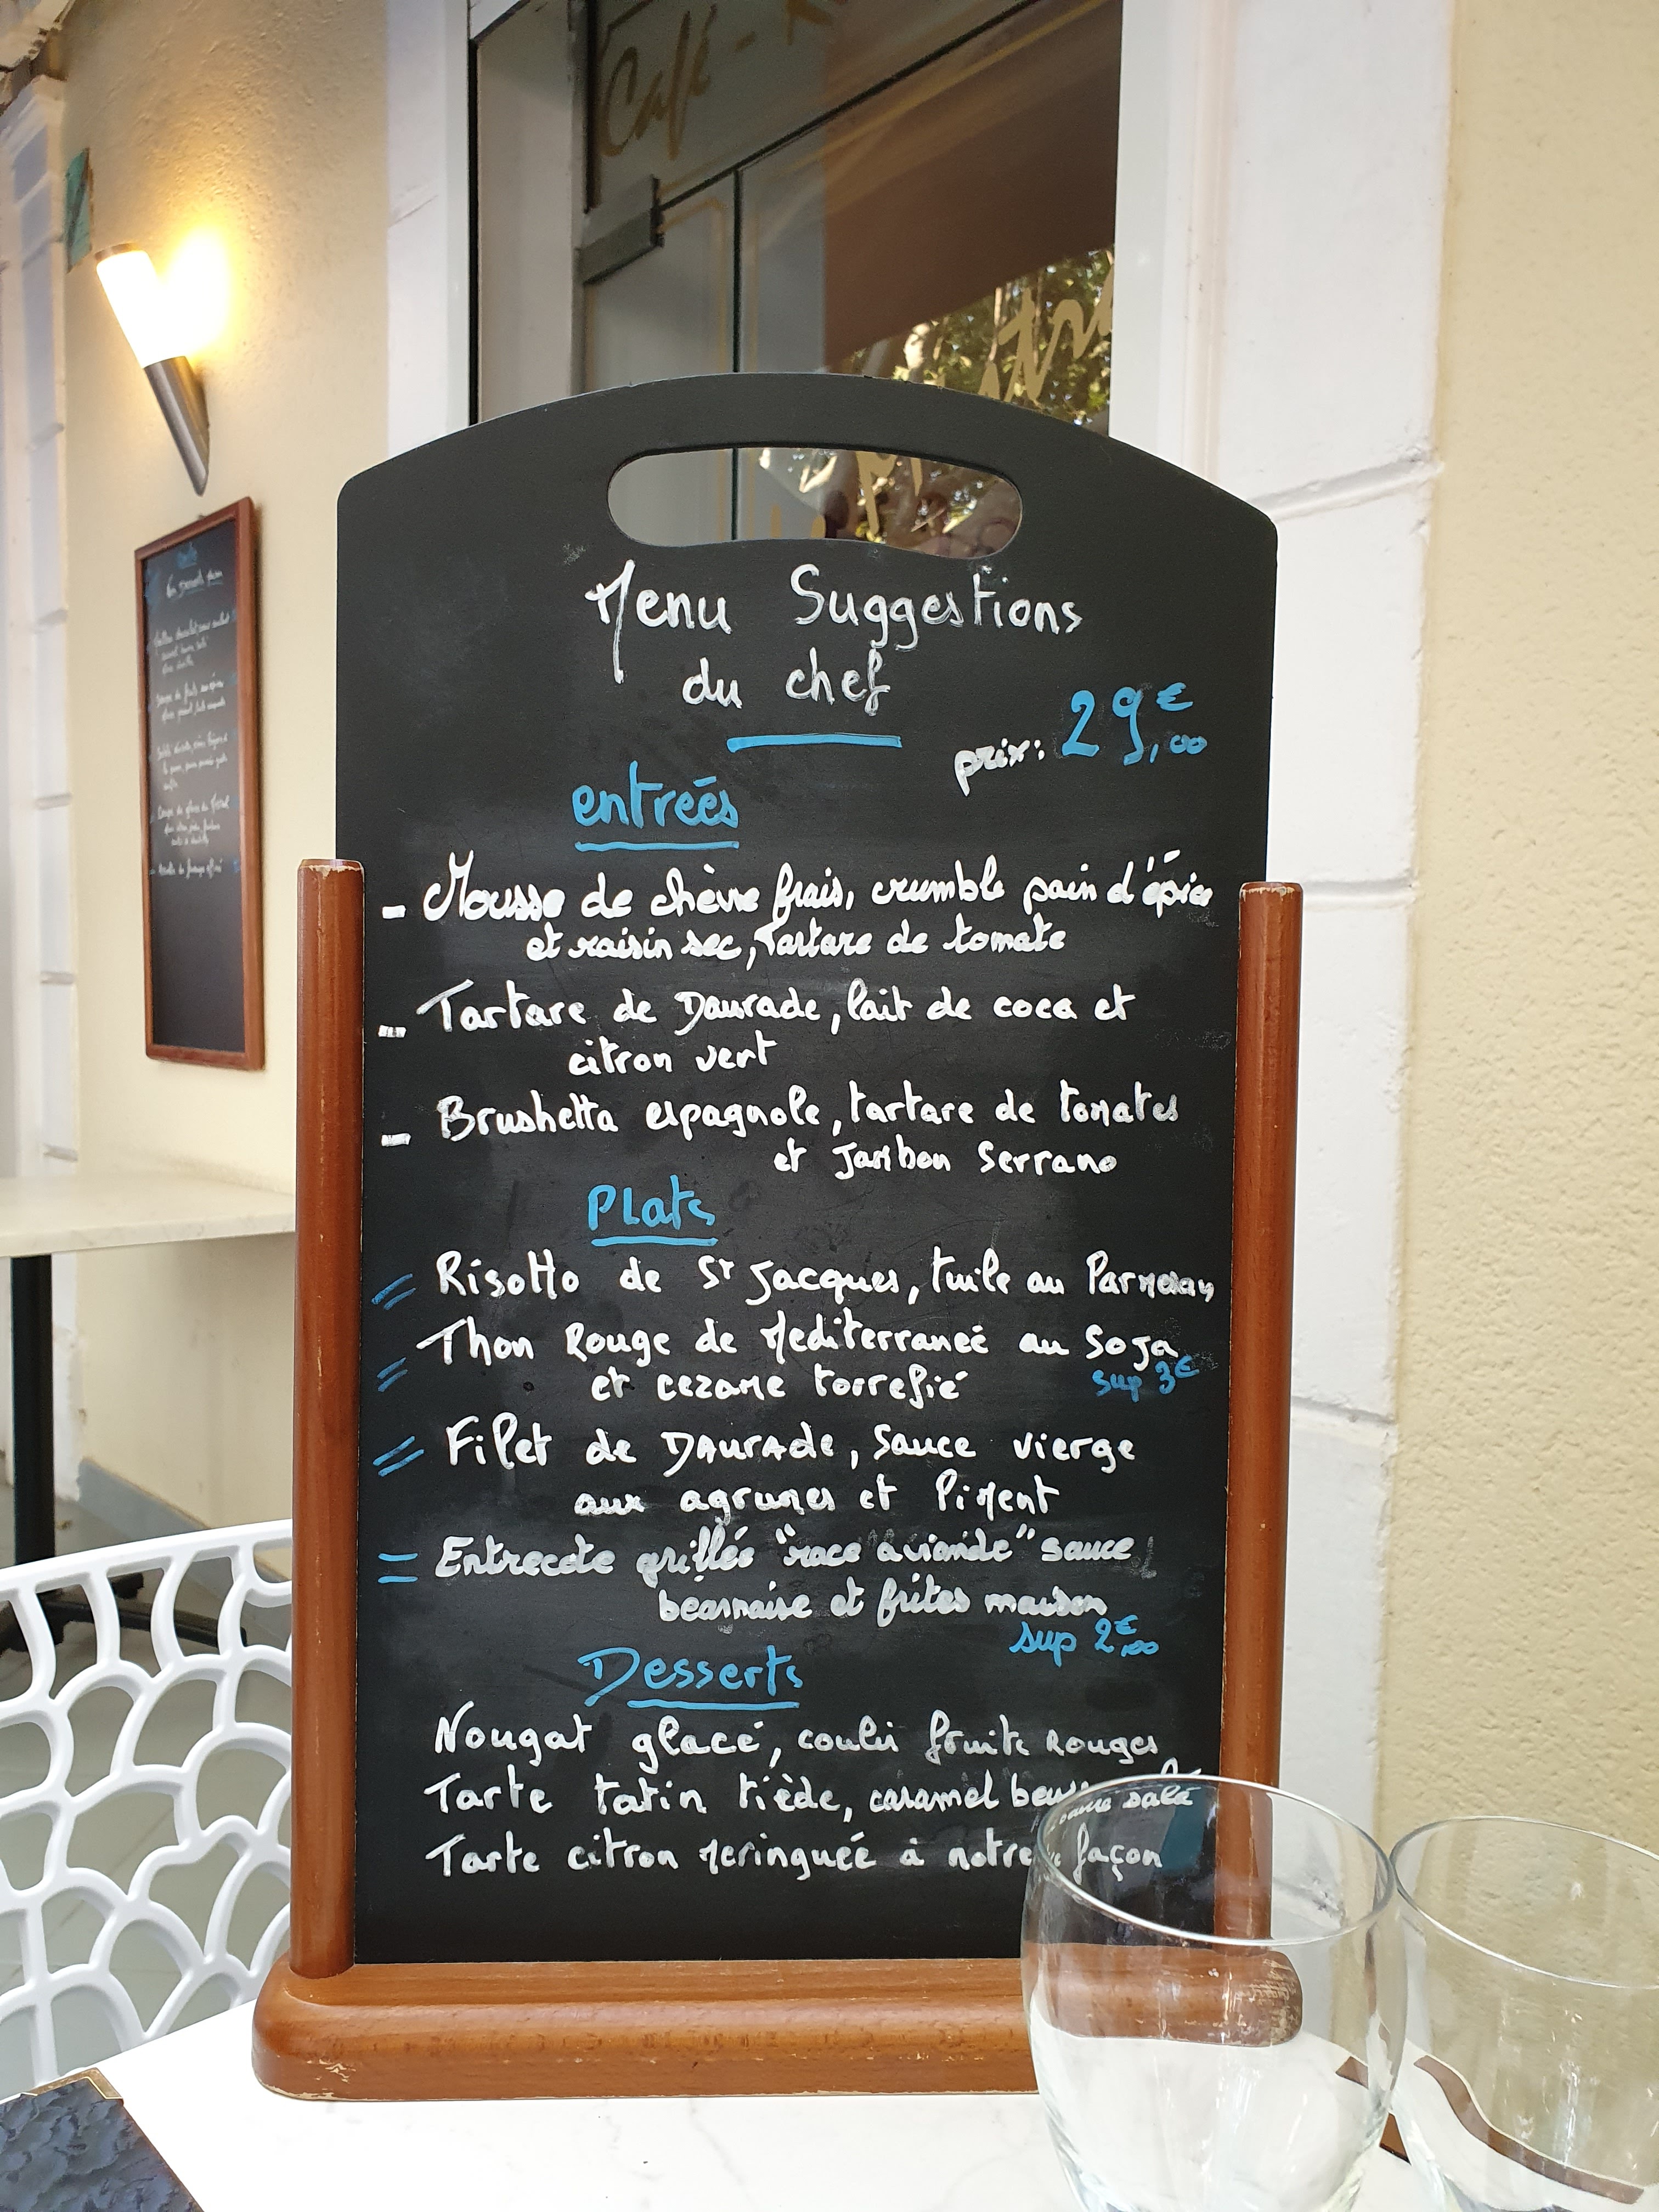 Café -
Menu Suggestions
du chef
prix: 29€,00
entreés
- Mousse de chèvre frais, crumble pain d'épice
et raisin sec, Tartare de tomate
- Tartare de Daurade, lait de coca et
citron vert
- Brushetta espagnole, tartare de tomates
et Jambon Serrano
Plats
= Risotto de St Jacques, tuile au Parmesan
= Thon Rouge de Mediterraneé au Soja
et cezame torrefié sup 3€
= Filet de DAurAde, Sauce vierge
aux agrumes et Piment
= Entrecote grillée "race à viande" sauce
béarnaise et frites maison
sup 2€,00
Desserts
Nougat glacé, coulis fruits Rouges
Tarte tatin tiède, caramel beurre salé
Tarte citron meringuée à notre façon